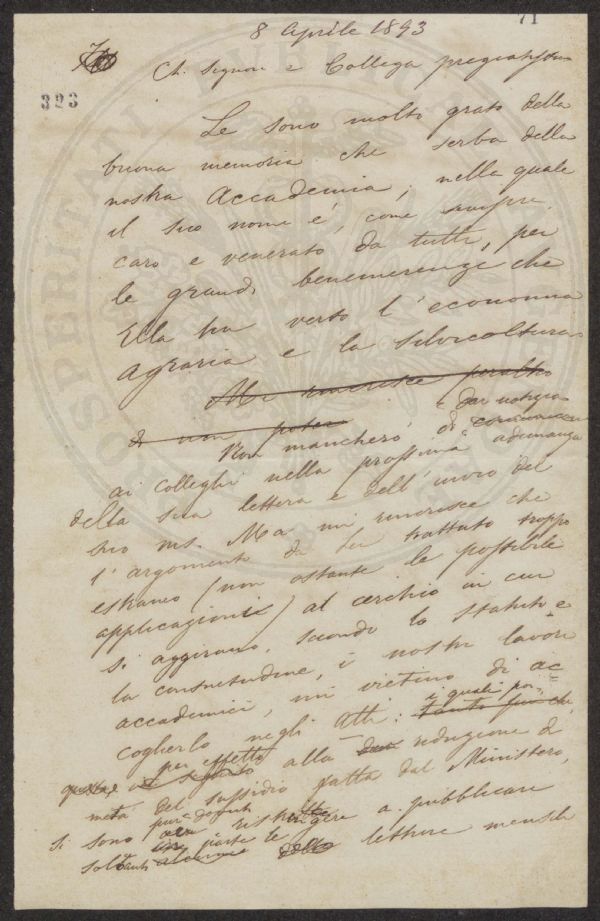 8 Aprile 1893
71
393
Ch. Signore e Collega pregiatissimo
Le sono molto grato della
buona memoria che serba della
nostra Accademia, nella quale
il suo nome è, come sempre,
caro e venerato da tutti, per
le grandi benemerenze che
Ella ha verso l'economia
agraria e la silvicoltura
Mi rincresce peraltro
di non poter
Non mancherò di dar notizia
ai colleghi nella prossima adunanza
della sua lettera e dell'invio del
suo ms. Ma mi rincresce che
l'argomento da lei trattato troppo
estraneo (non ostante le possibili
applicazioni) al cerchio in cui
si aggirano, secondo lo statuto e
la consuetudine, i nostri lavori
accademici, mi vietino di ac
coglierlo negli Atti: i quali poi,
tanto più che
per effetto
alla riduzione a
metà del sussidio fatta dal Ministero,
si sono pur dovuti ristringere a pubblicare
soltanto in parte le letture mensili